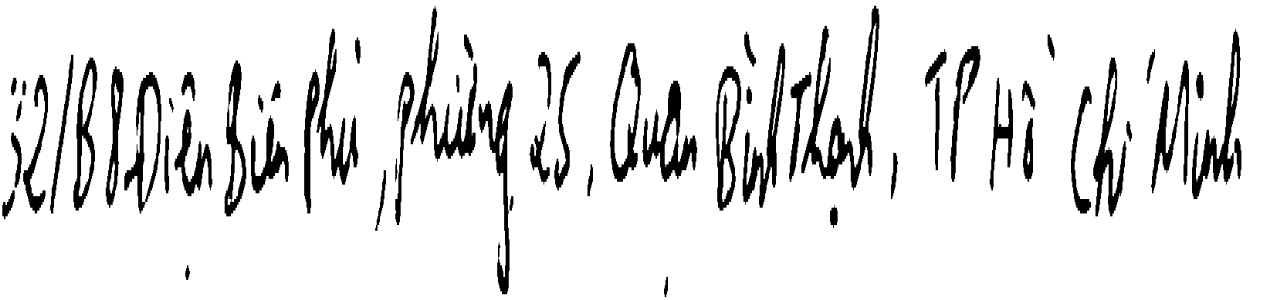 32/B8 Điện Biên Phủ, phường 25, Quận Bình Thạnh, TP Hồ Chí Minh